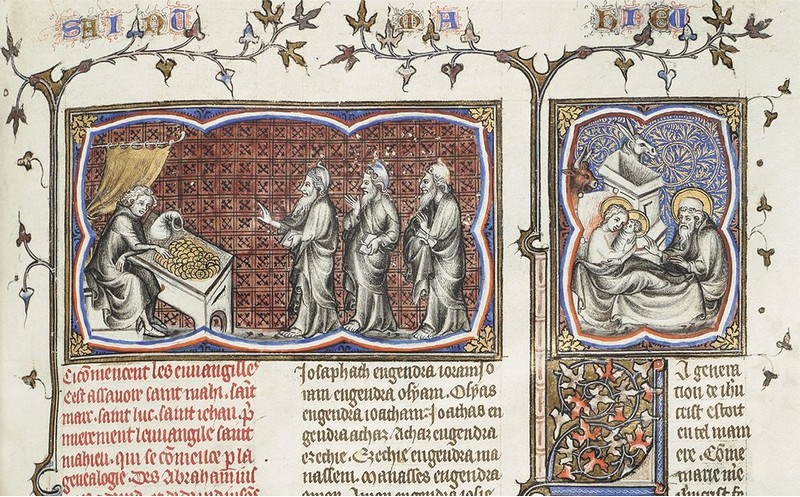 SAINC MA HIEU
Ci cõmencent les euuangilles
cest assauoir saint mahi. saīt
marc. saint luc. saint iehan. p̄
mierement leuuangile saint
mahieu. qui se cõmence p la
genealogie. Des Abraham iu
Iosaphath engendra ioram Jo
ram engendra osyam. Osyas
engendra ioatham. Joathas en
gendra achaz. Achaz engendra
ezechie. Ezechie engendra ma
nassem. manasses engendra
amon. Amon engendra iosie
La genera
tion de ihu
crist estoit
en tel mani
ere. Cõme
marie